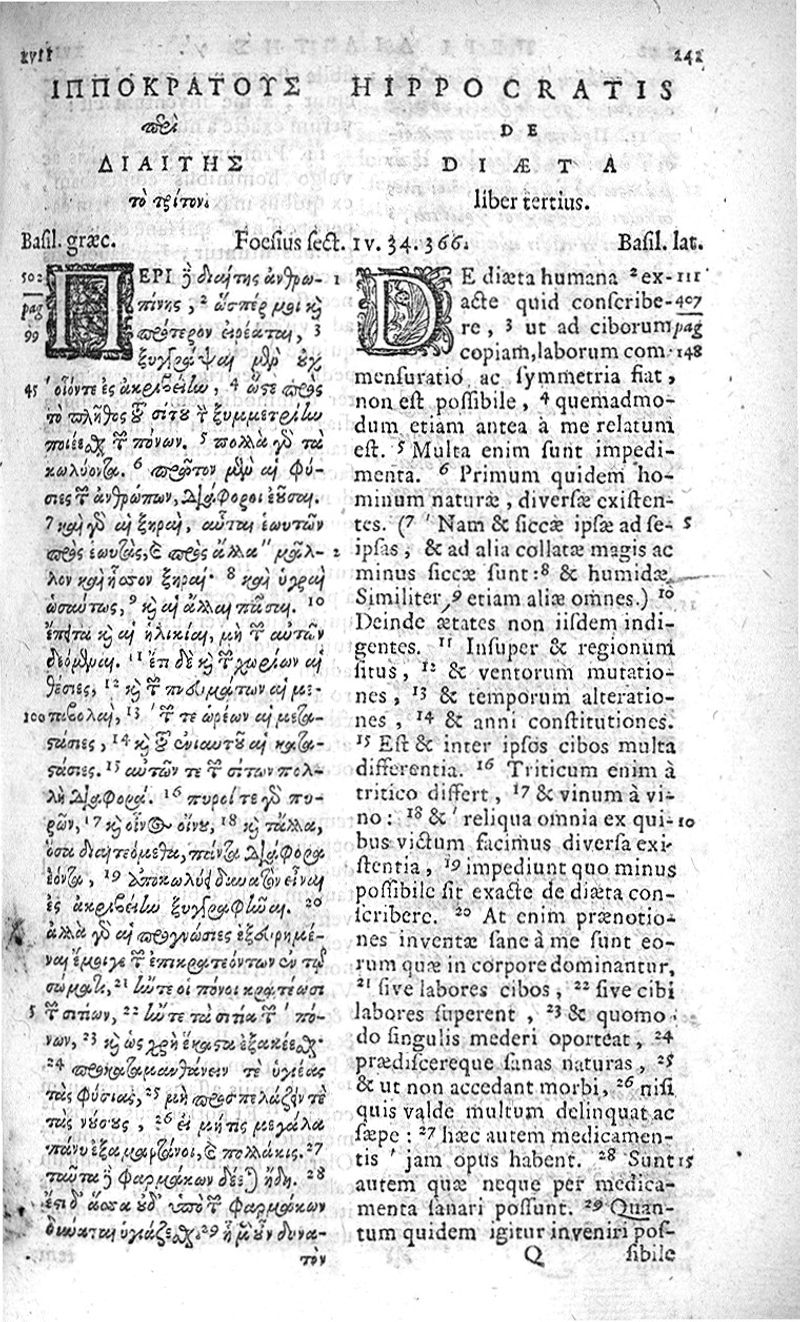 XVII
242
ΙΠΠΟΚΡΑΤΟΥΣ
περὶ
ΔΙΑΙΤΗΣ
τὸ τρίτον.
HIPPOCRATIS
DE
DIÆTA
liber tertius.
Basil. græc. Foesius sect. IV. 34. 366. Basil. lat.
502
pag
99
ΠΕΡΙ ἢ διαίτης ἀνθρω- 1
πίνης, 2 ὥσπέρ μοι κὶ
πρότερον εἰρέαται, 3
ξυγγράψαι μὲν οὐχ
45 οἷόντε ἐς ἀκριβείην, 4 ὥςε πρὸς
τὸ πλῆθος τοῦ σίτου τὴν ξυμμετρίην
ποιέεσθαι τῶν πόνων. 5 πολλὰ γὸ τὰ
κωλύοντα. 6 πρῶτον μὲν αἱ φύ-
σιες τῶν ἀνθρώπων, διάφοροι ἐοῦσαι.
7 καὶ γὸ αἱ ξηραὶ, αὗται ἑωυτῶν
πρὸς ἑωυτὰς, καὶ πρὸς ἄλλα" μᾶλ- 2
λον καὶ ἧσσον ξηραί· 8 καὶ ὑγραὶ
ὡσαύτως, 9 κὶ αἱ ἄλλαι πᾶσαι. 10
ἔπειτα κὶ αἱ ἡλικίαι, μὴ τῶν αὐτῶν
δεόμεναι. 11 ἔτι δὲ κὶ τῶν χωρίων αἱ
θέσιες, 12 κὶ τῶν πνευμάτων αἱ με-
100 ταβολαὶ, 13 ' τῶν τε ὡρέων αἱ μετα-
στάσιες, 14 κὶ τοῦ ἐνιαυτοῦ αἱ κατα-
στάσιες. 15 αὐτῶν τε τῶν σίτων πολ-
λὴ διαφορά. 16 πυροί τε γὸ πυ-
ρῶν, 17 κὶ οἶνος οἴνου, 18 κὶ τἄλλα,
ὅσα διαιτεόμεθα, πάντα διάφορα
ἐόντα, 19 ἀποκωλύει δυνατὸν εἶναι
ἐς ἀκριβείην ξυγγραφῆναι. 20
ἀλλὰ γὸ αἱ προγνώσιες ἐξευρημέ-
ναι ἔμοιγε τῶν ἐπικρατεόντων ἐν τῷ
σώματι, 21 ἤν τε οἱ πόνοι κρατέωσι
5 τῶν σιτίων, 22 ἤν τε τὰ σιτία τῶν ' πό-
νων, 23 κὶ ὡς χρὴ ἕκαστα ἐξακέεσθαι·
24 προκαταμανθάνειν τε ὑγιέας
τὰς φύσιας, 25 μὴ προσπελάζειν τε
τὰς νούσους, 26 εἰ μή τις μεγάλα
πάνυ ἐξαμαρτάνοι, καὶ πολλάκις. 27
ταῦτα ἢ φαρμάκων δέεται ἤδη. 28
ἔστι δ' ἅσσα οὐδ' ὑπὸ τῶν φαρμάκων
δύναται ὑγιάζεσθαι. 29 ᾗ μὲν οὖν δυνα-
τὸν
DE diæta humana 2 ex- III
acte quid conscribe- 407
re, 3 ut ad ciborum pag
copiam, laborum com- 148
mensuratio ac symmetria fiat,
non est possibile, 4 quemadmo-
dum etiam antea à me relatum
est. 5 Multa enim sunt impedi-
menta. 6 Primum quidem ho-
minum naturæ, diversæ existen-
tes. (7 ' Nam & siccæ ipsæ ad se- 5
ipsas, & ad alia collatæ magis ac
minus siccæ sunt: 8 & humidæ
Similiter, 9 etiam aliæ omnes.) 10
Deinde ætates non iisdem indi-
gentes. 11 Insuper & regionum
situs, 12 & ventorum mutatio-
nes, 13 & temporum alteratio-
nes, 14 & anni constitutiones.
15 Est & inter ipsos cibos multa
differentia. 16 Triticum enim à
tritico differt, 17 & vinum à vi-
no: 18 & ' reliqua omnia ex qui- 10
bus victum facimus diversa exi-
stentia, 19 impediunt quo minus
possibile sit exacte de diæta con-
scribere. 20 At enim prænotio-
nes inventæ sane à me sunt eo-
rum quæ in corpore dominantur,
21 sive labores cibos, 22 sive cibi
labores superent, 23 & quomo-
do singulis mederi oporteat, 24
prædiscereque sanas naturas, 25
& ut non accedant morbi, 26 nisi
quis valde multum delinquat ac
sæpe: 27 hæc autem medicamen-
tis ' jam opus habent. 28 Sunt 15
autem quæ neque per medica-
menta sanari possunt. 29 Quan-
tum quidem igitur inveniri pos-
Q sibile